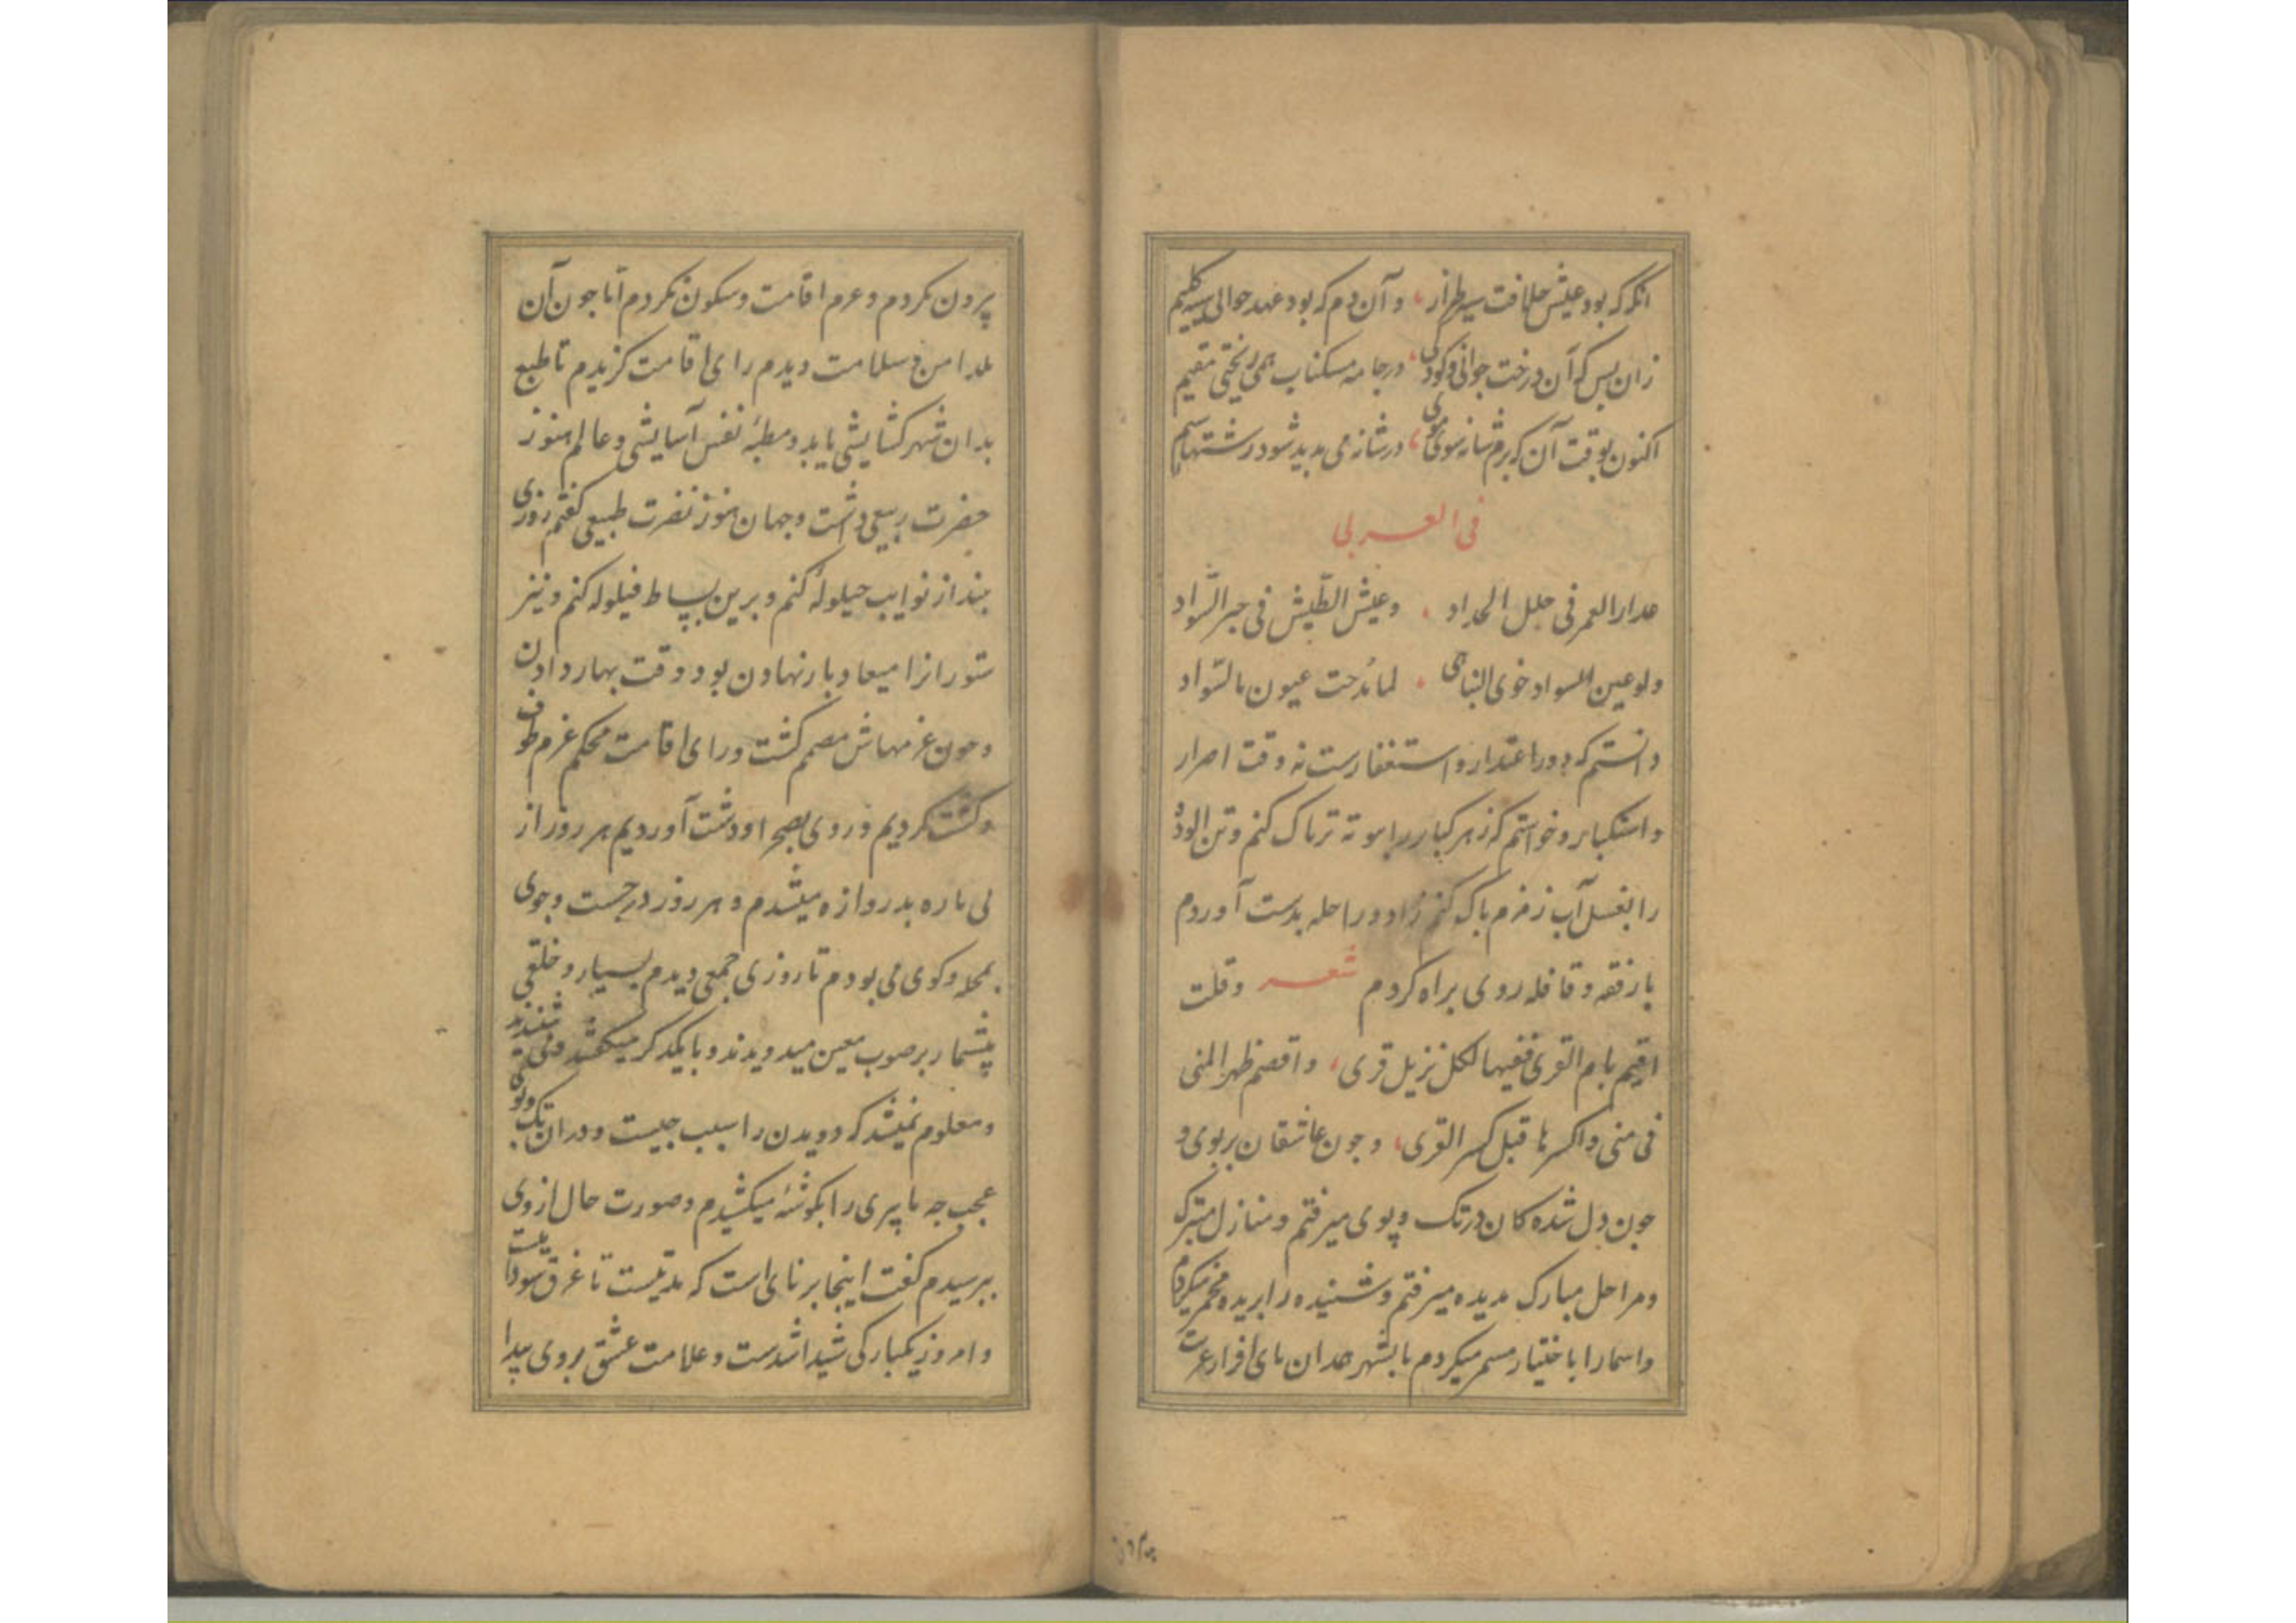 آنگه که بود عیش خلافت سیه طراز، و آن دم که بود عهد حوالی سیه گلیم
زان پس که آن درخت جوانی و کودکی، در جامه مسکناب همی ریختی مقیم
اکنون بوقت آن که برم شانه سوی موی، در شانه می بدید شود رشتهاء سیم
فی العربی
مدار العمر فی حلل الحداد . وعیش الطیش فی حبر السواد
ولو عین السواد خوی التباهی . لما مُدحت عیون بالسواد
دانستم که دور اعتذار و استغفارست نه وقت اصرار
و استکبار و خواستم که زهر کبایر را بتوبه تریاک کنم و تن آلوده
را بغسل آب زمزم پاک کنم زاد و راحله بدست آوردم
با رفقه و قافله روی براه کردم شعر وقلت
اقیم بام القری ففیها لکل نزیل قری، واقصم ظهر المنی
فی منی واکسرها قبل کسر القری، و چون عاشقان بر بوی و
چون دل شده کان در تک و پوی میرفتم و منازل متبرک
و مراحل مبارک بدیده میرفتم و شنیده را بدیده مخمر میکردم
و اسما را باختیار مسمی میکردم تا بشهر همدان پای افزار غربت
بیرون کردم و عزم اقامت و سکون نکردم اما چون آن
بلد امن و سلامت دیدم رای اقامت گزیدم تا طبع
بدان شهر گشایشی یابد و مطیهٔ نفس آسایشی و عالم هنوز
خضرت ربیعی داشت و جهان هنوز نضرت طبیعی گفتم روزی
چند از نوایب حیلوله کنم و برین بساط قیلوله کنم و نیز
ستورانرا میعاد بار نهادن بود و وقت بهار دادن
و چون عزمهاش مصمم گشت و رای اقامت محکم عزم طوف
و گشت کردیم و روی بصحرا و دشت آوردیم هر روز از
پی باره بدروازه میشدم و هر روز در جست و جوی
بمحله و کوی می بودم تا روزی جمعی دیدم بسیار و خلقی
بیشمار بر صوب معین میدویدند و با یکدیگر میگفتند و می شنیدند
و معلوم نمیشد که دویدن را سبب چیست و در آن تک و پوی
عجب چه با پیری را بگوشهٔ میکشیدم و صورت حال از وی
بپرسیدم گفت اینجا برنای است که مدتیست تا غرق سوداست
و امروز یکبارکی شیدا شدست و علامت عشق بر وی پیدا